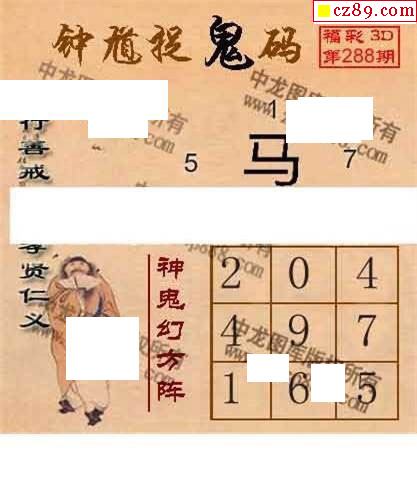 cz89.com
钟馗捉鬼码
福彩 3D
第288期
1
5 马 7
行善戒
孝贤仁义
神鬼幻方阵
2 0 4
4 9 7
1 6 5
中龙图库版权所有